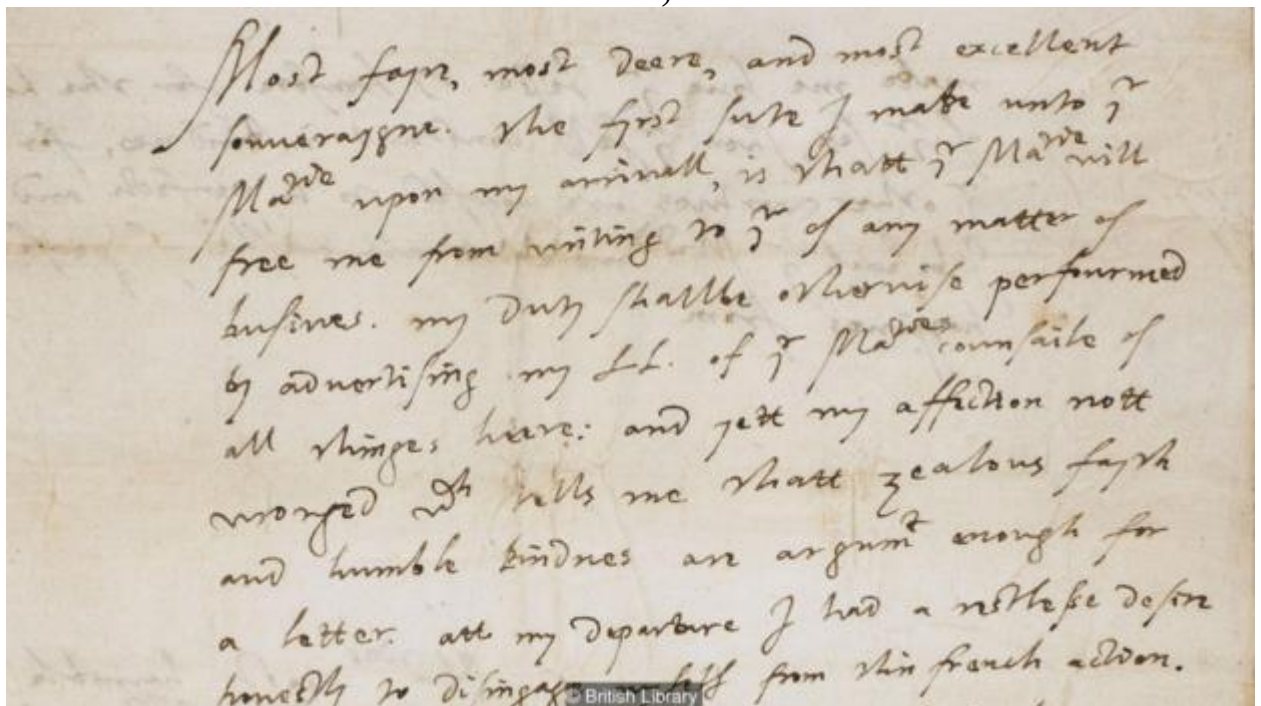 Most fayre, most deere, and most excellent
souveraygne. the fyrst sute I make unto yr
Matie upon my arrivall, is thatt yr Matie will
free me from writing to yr of any matter of
busines. my duty shallbe otherwise perfourmed
by advertising my LL. of yr Maties counsaile of
all thinges heere: and yett my affection nott
wronged wch tells me thatt zealous fayth
and humble kindnes are argumt enough for
a letter. att my departure I had a restlesse desire
honestly to disingage self from this french action.
© British Library